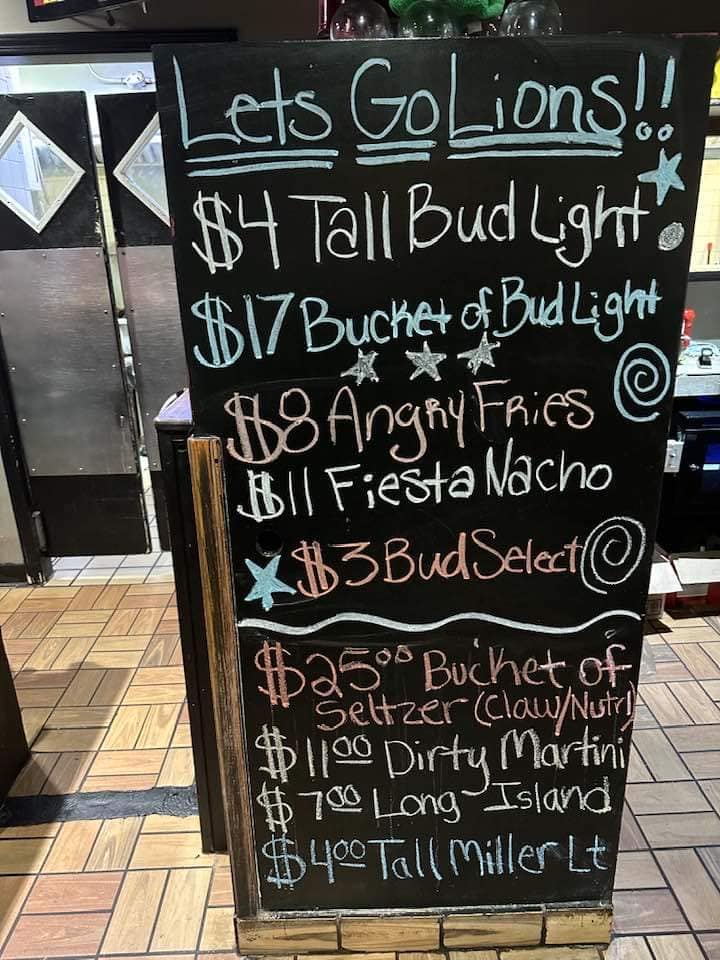 Lets Go Lions!!
$4 Tall Bud Light
$17 Bucket of Bud Light
$8 Angry Fries
$11 Fiesta Nacho
$3 Bud Select
$25⁰⁰ Bucket of
Seltzer (Claw/Nutrl)
$11⁰⁰ Dirty Martini
$7⁰⁰ Long Island
$4⁰⁰ Tall Miller Lt